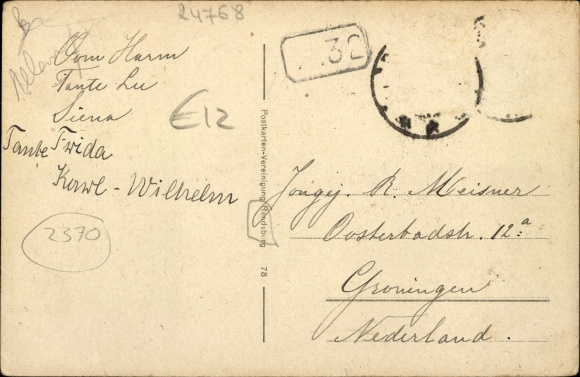 24768
Oom Harm
Tante Lu
Siena
Tante Frida
Karl - Wilhelm
€12
2370
32
Postkarten-Vereinigung Rendsburg 78
Jongej. R. Meisner
Oosterbadstr. 12a
Groningen
Nederland.